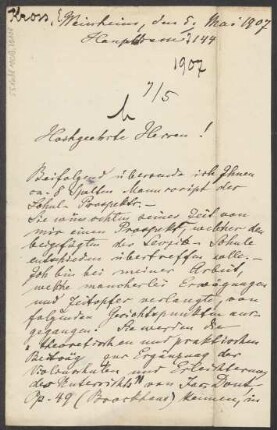 Kross, E.
Weinheim, den 5. Mai 1907
Hauptstrasse 144
1907
7/5
Hochgeehrte Herren!
Beifolgend übersende ich Ihnen
ca. 8 Spalten Manuscript der
Schul-Prospekte.—
Sie wünschten seiner Zeit von
mir einen Prospekt, welcher den
beigefügten der Sevčik-Schule
entschieden übertreffen solle.—
Ich bin bei meiner Arbeit,
welche mancherlei Erwägungen
und Zeitopfer verlangte, von
folgenden Gesichtspunkten aus-
gegangen: Sie werden die
"theoretischen und praktischen
Beiträg zur Ergänzung der
Violinschulen und Erleichterung
des Unterrichts" von Jac. Dont
Op. 49 ( ) kennen, in